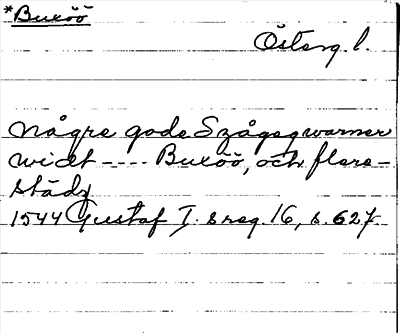 *Buxöö
Österg. l.
några gode Szågeqwarner
widt ---- Buxöö, och flere-
städz
1544 Gustaf I. s reg. 16, s. 627.